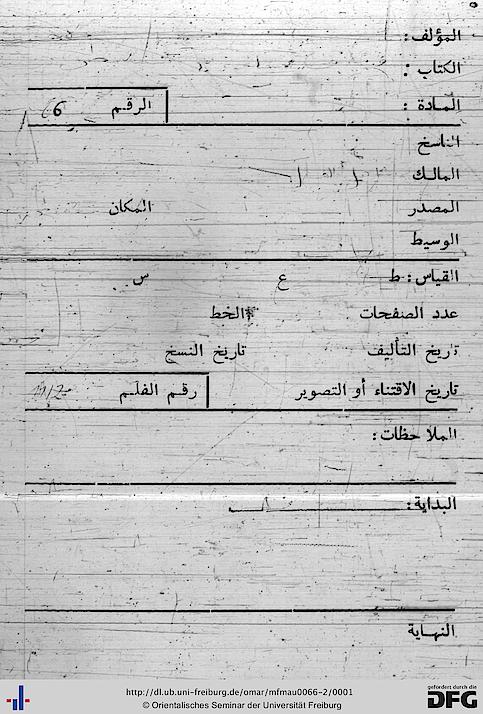 المؤلف:
الكتاب:
المادة: الرقم 66
الناسخ
المالك
المصدر المكان
الوسيط
القياس: ط ع س
عدد الصفحات الخط
تاريخ التأليف تاريخ النسخ
تاريخ الاقتناء أو التصوير رقم الفلم
الملاحظات:
البداية:
النهاية
http://dl.ub.uni-freiburg.de/omar/mfmau0066-2/0001
© Orientalisches Seminar der Universität Freiburg
gefördert durch die
DFG